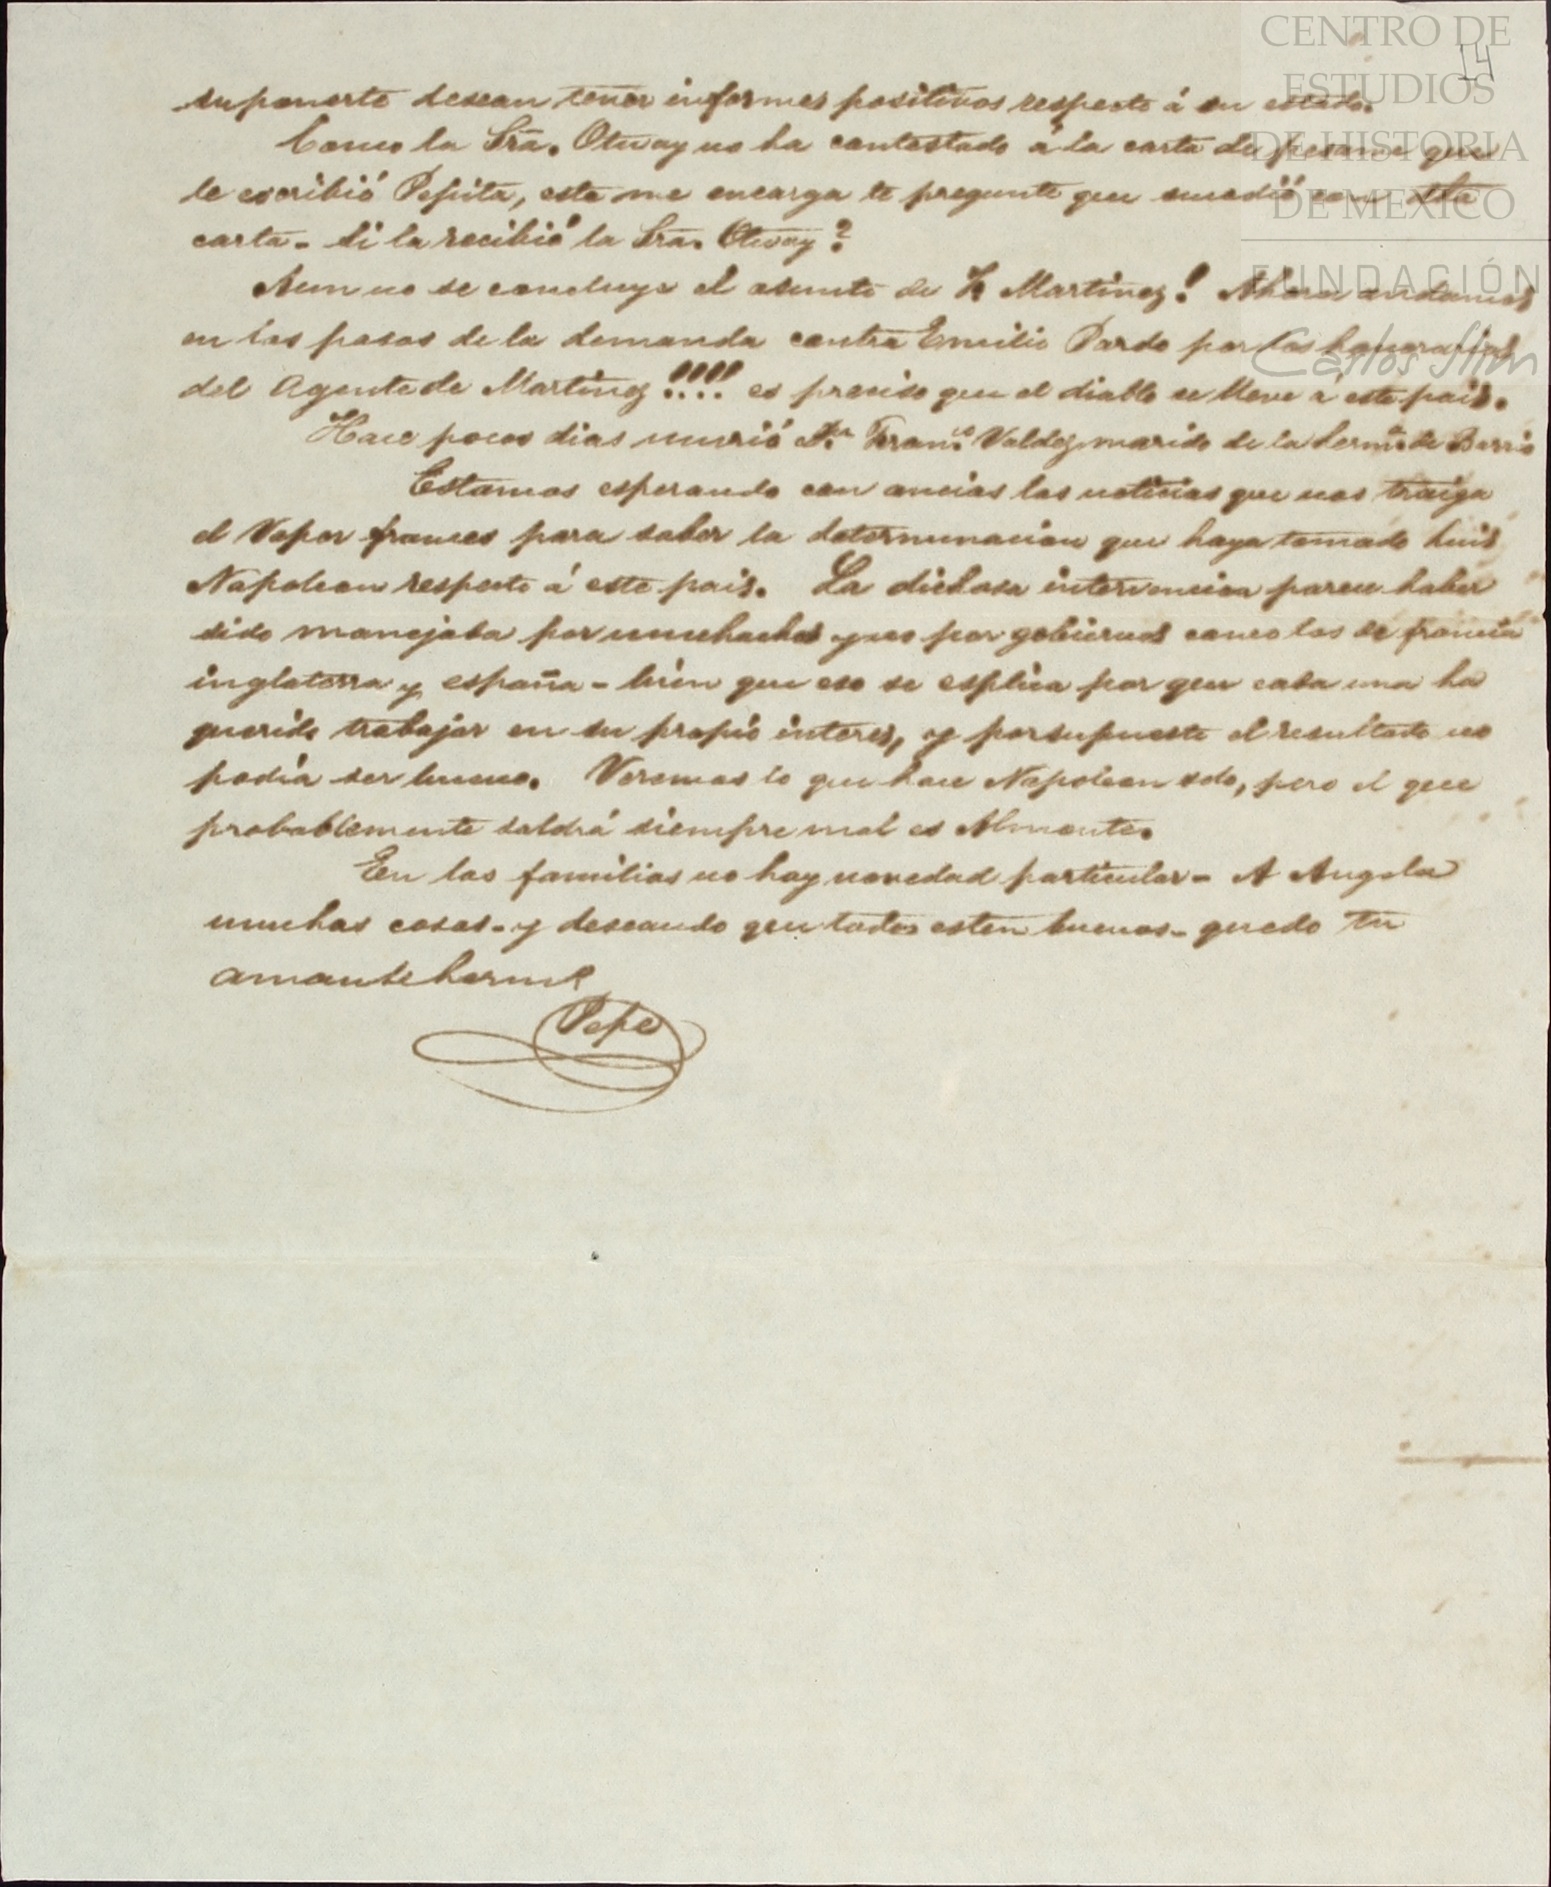 CENTRO DE
ESTUDIOS
DE HISTORIA
DE MEXICO
FUNDACIÓN
Carlos Slim
14
suponerte desean tener informes positivos respecto á su estado.
Como la Sra. Otway no ha contestado á la carta de pesame que
le escribió Pepita, esta me encarga te pregunte que sucedió con dha
carta - si la recibió la Sra. Otway?
Aun no se concluye el asunto de Martinez! Ahora andamos
en los pasos de la demanda contra Emilio Pardo por los honorarios
del Agente de Martinez!!!! es preciso que el diablo se lleve á este pais.
Hace pocos dias murió Dn. Franco. Valdez marido de la herma. de Barrio
Estamos esperando con ancias las noticias que nos traiga
el Vapor frances para saber la determinacion que haya tomado Luis
Napoleon respecto á este pais. La dichosa intervencion parece haber
sido manejada por muchachos y no por gobiernos como los de francia
inglaterra y españa - bien que eso se esplica por que cada una ha
querido trabajar en su propio interes, y por supuesto el resultado no
podia ser bueno. Veremos lo que hace Napoleon solo, pero el que
probablemente saldrá siempre mal es Almonte.
En las familias no hay novedad particular - A Angela
muchas cosas - y deseando que todos esten buenos - quedo tu
amante hermo
Pepe